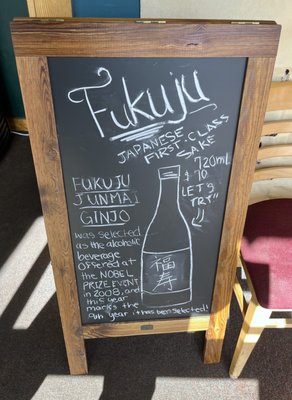 Fukuju
JAPANESE
FIRST CLASS
SAKE
720mL
$70
LET'S
TRY
FUKUJU
JUNMAI
GINJO
was selected
as the alcoholic
beverage
offered at
the NOBEL
PRIZE EVENT
in 2008, and
this year
marks the
9th year it has been selected!
福
寿